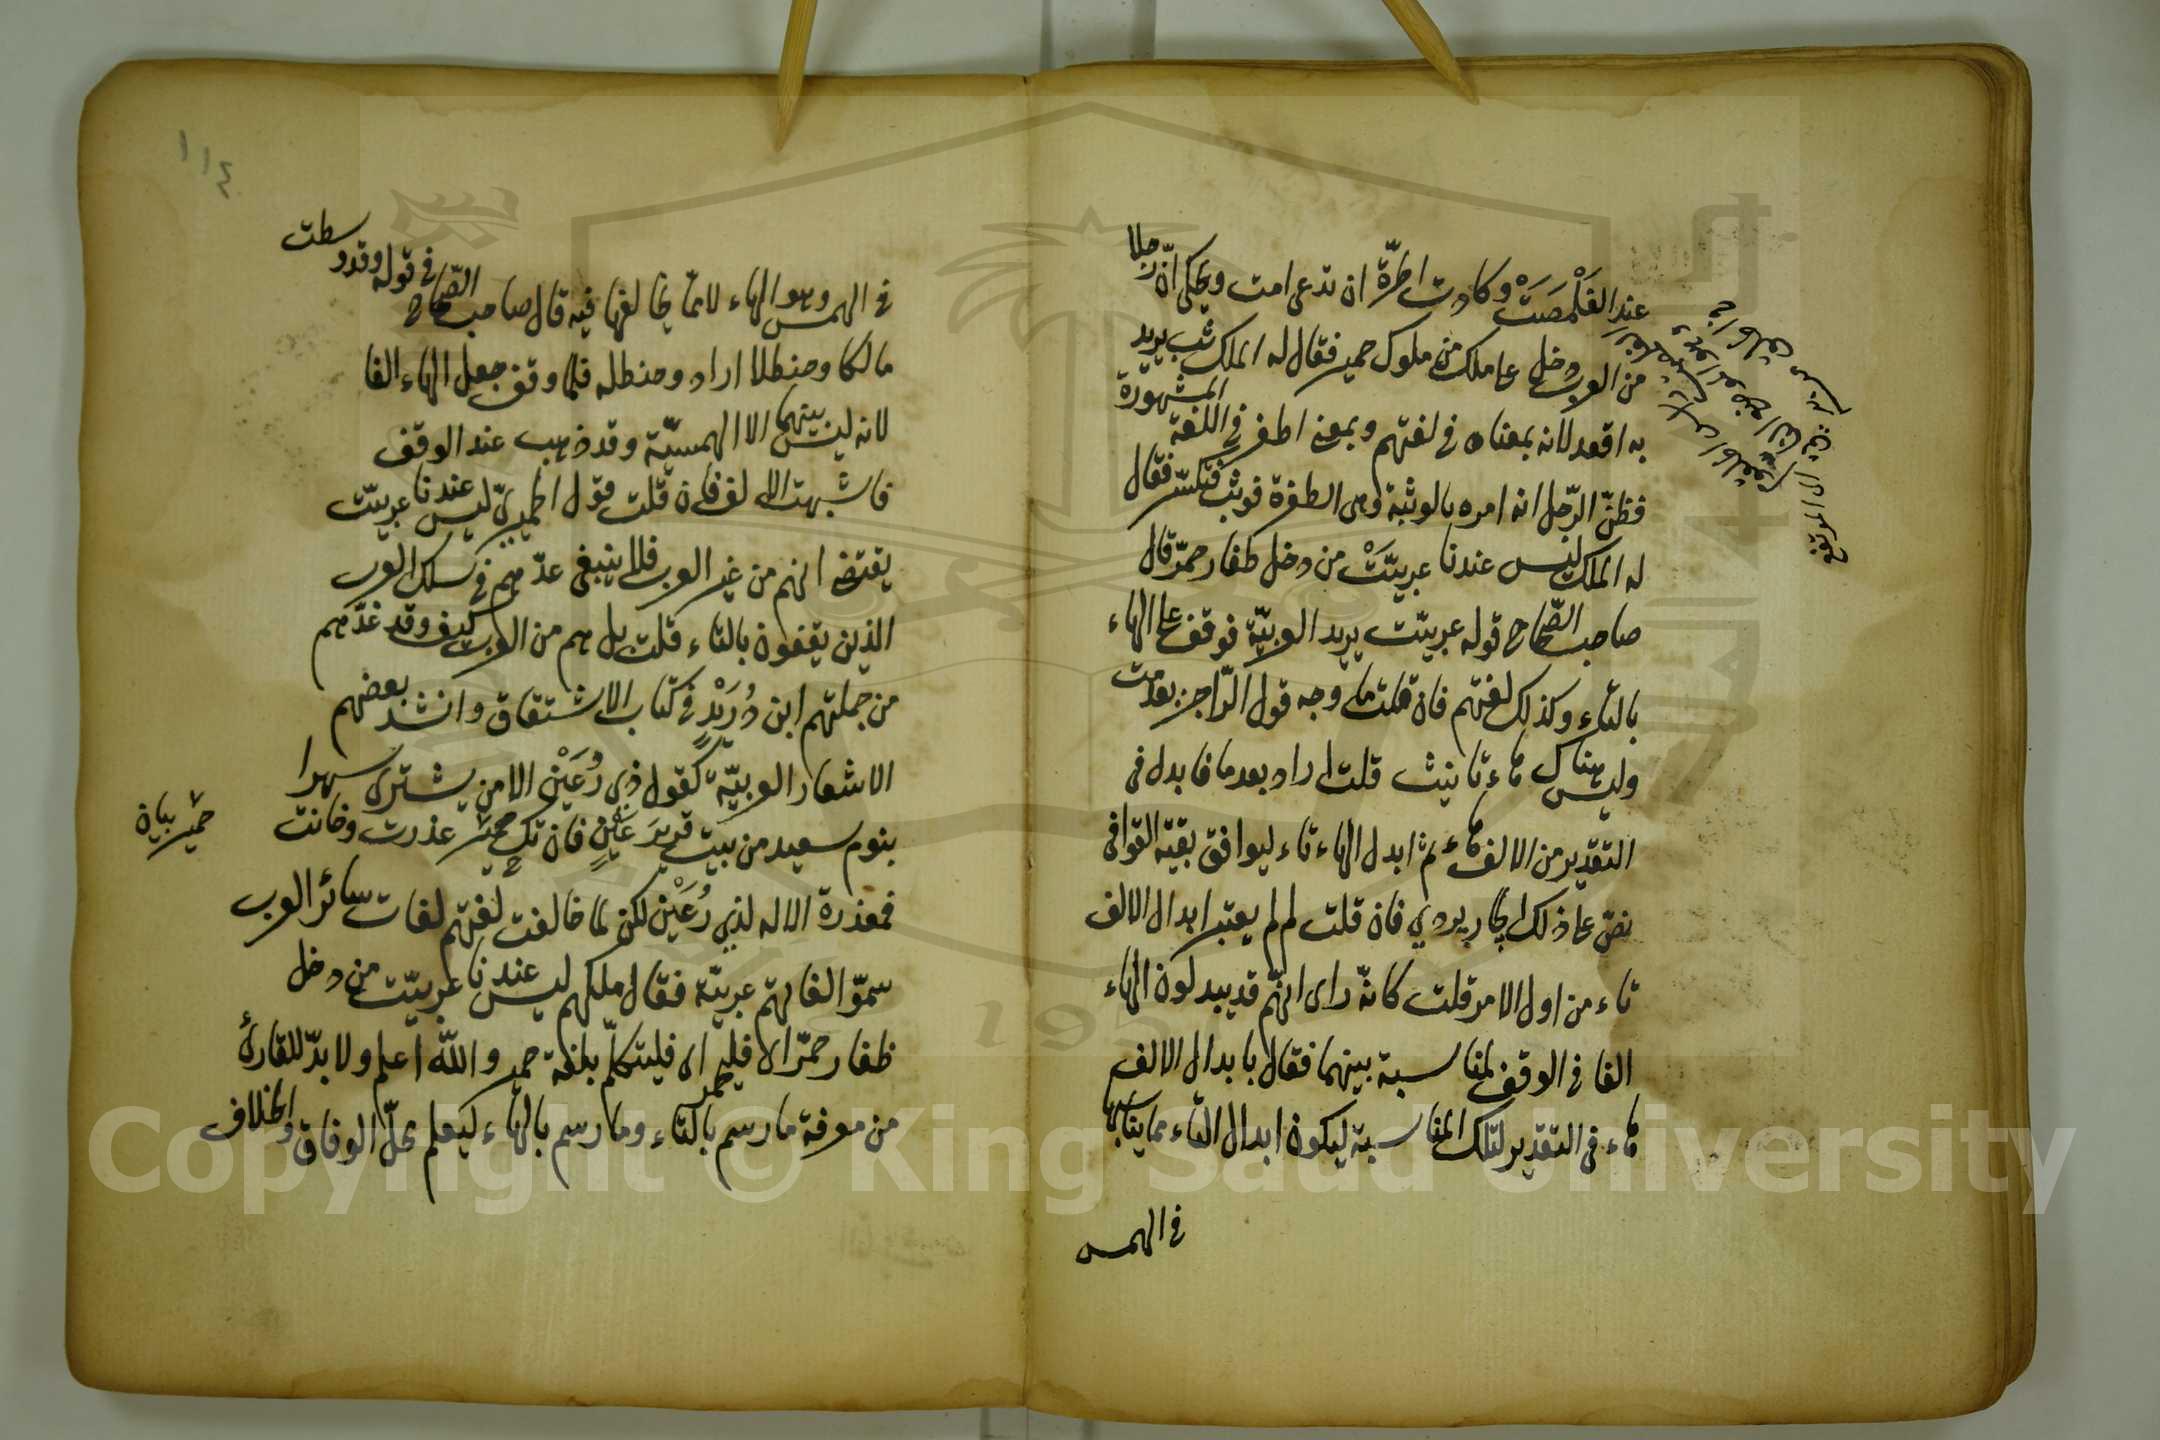 عند الغَلْصَمَتْ وكادت الحرّة ان تدعى امت ويحكى انّ رجلا
من العرب دخل على ملك من ملوك حمير فقال له الملك ثب يريد
به اقعد لانه بمعناه في لغتهم وبمعنى اطفر في اللغة المشهورة
فظنّ الرّجل انه امره بالوثبة وهى الطفرة فوثب فتكسّر فقال
له الملك ليس عندنا عربيّتْ من دخل ظفار حمّر قال
صاحب الصّحاح قوله عربيّت يريد العربيّة فوقف على الهاء
بالتاء وكذلك لغتهم فان قلت ما وجه قول الرّاجز بعدمت
وليس هناك هاء تانيث قلت اراد بعدما فابدل فى
التقدير من الالف هاء ثم ابدل الهاء تاء ليوافق بقيّة القوافى
نصّ على ذلك الجاربردي فان قلت لم لم يعتبر ابدال الالف
تاء من اول الامر قلت كانّه راى انهّم قد يبدلون الهاء
الفا في الوقف لمناسبة بينهما فقال بابدال الالف
هاء فى التقدير لتلك المناسبة ليكون ابدال التاء مما يناسبها
في الهمس
١١٤
في الهمس وهو الهاء لا ممّا يخالفها فيه قال صاحب الصّحاح في قوله وقد وسطت
مالكا وحنظلا اراد وحنظله فلما وقف جعل الهاء الفا
لانه ليس بينهما الا الهمسيّة وقد ذهب عند الوقف
فاشبهت الالف فان قلت قول الحميريّ ليس عندنا عربيّت
يقتضى انهم من غير العرب فلا ينبغى عدّهم في سلك العرب
الذين يقفون بالتاء قلت بل هم من العرب كيف وقد عدّهم
من جملتهم ابن دُرَيْدٍ في كتاب الاشتقاق وانشد بعضهم
الاشعار العربيّة كقول ذى رُعَيْن الا من يشترى سهرا
بنوم سعيد من يبيت قريرَ عَيْنٍ فان تك حمير غدرت وخانت
حمير بيان
فمعذرة الاله لذي رُعَيْن لكن لما خالفت لغتهم لغات سائر العرب
سمّوا لغاتهم عربيّة فقال ملكهم ليس عندنا عربيّت من دخل
ظفار حمّر الا فليحمر اى فليتكلّم بلغة حمير والله اعلم ولا بدّ للقارئ
من معرفة ما رسم بالتاء وما رسم بالهاء ليعلم محلّ الوفاق والخلاف